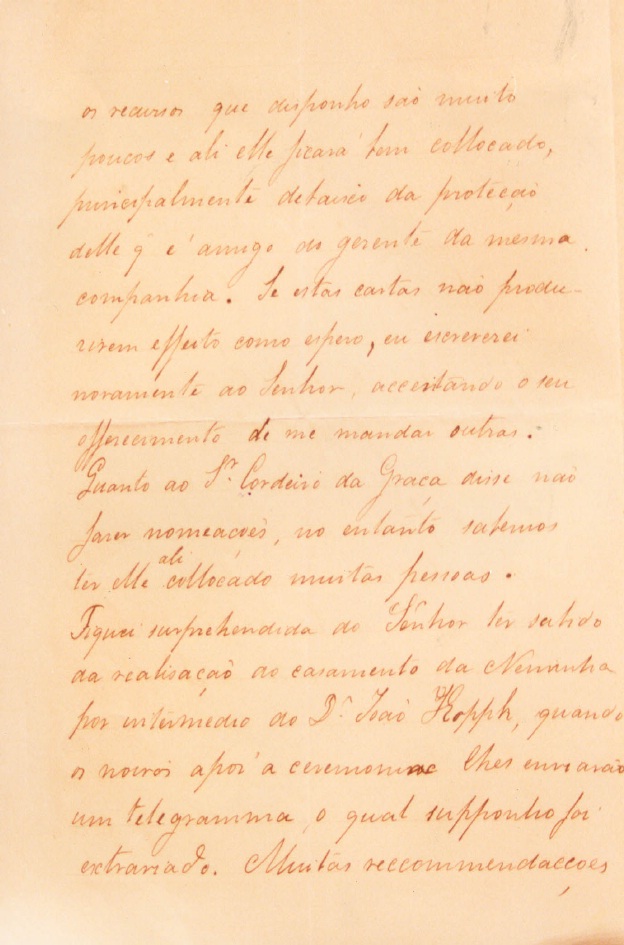 os recursos que disponho são muito
poucos e ali elle ficará bem collocado,
principalmente debaixo da protecção
delle q̃ é amigo do gerente da mesma
companhia. Se estas cartas não produ-
zirem effeito como espero, eu escreverei
novamente ao Senhor, acceitando o seu
offerecimento de me mandar outras.
Quanto ao Sr. Cordeiro da Graça disse não
fazer nomeações, no entanto sabemos
ter elle ali collocado muitas pessoas.
Fiquei surprehendida do Senhor ter sabido
da realisação do casamento da Nenninha
por intermedio do Dr. João Kopph, quando
os noivos após a ceremonia lhes enviarão
um telegramma, o qual supponho foi
extraviado. Muitas reccommendacções